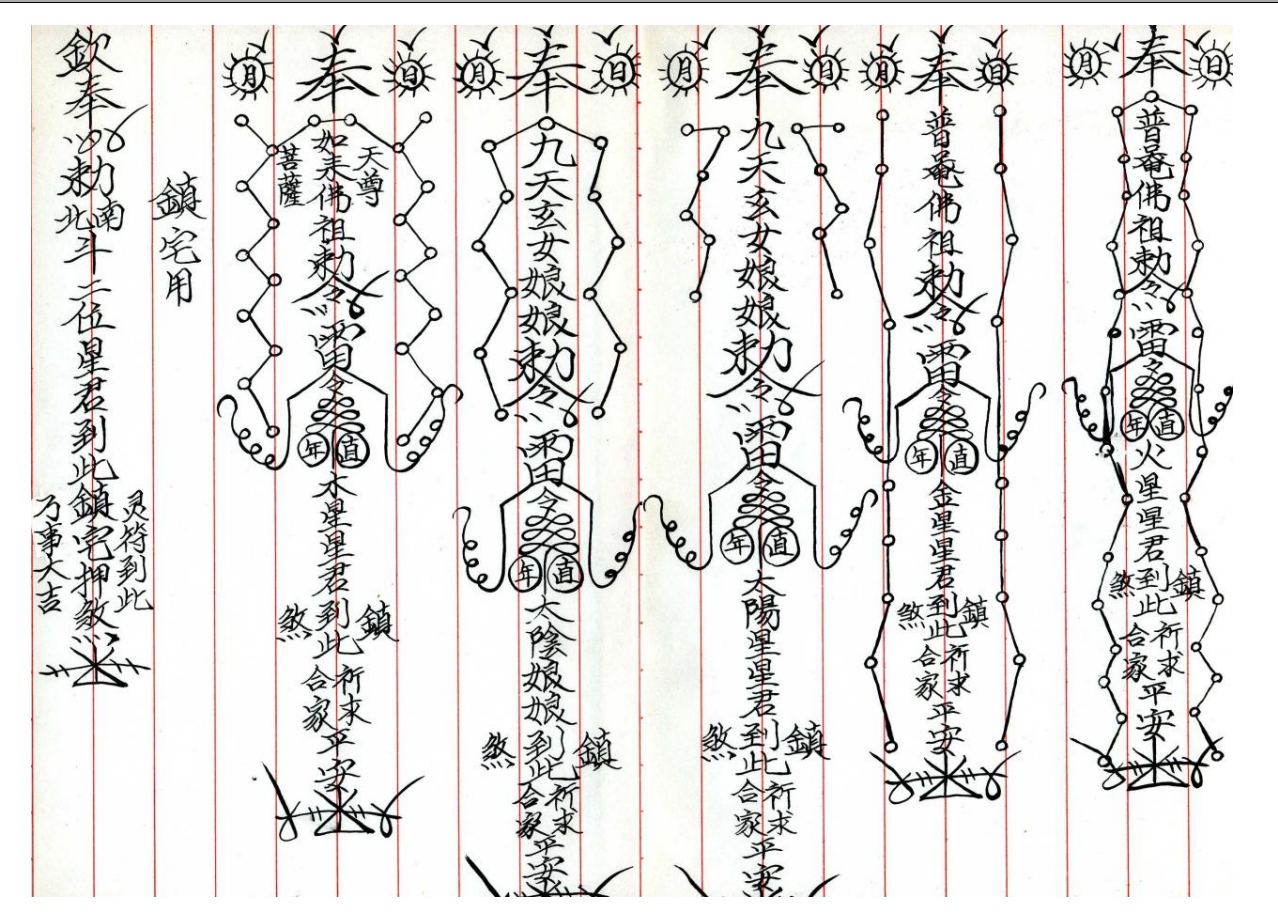 日 奉 月
普菴佛祖勅令雷令
直年
火星星君到此
鎮煞
祈求合家平安
日 奉 月
普菴佛祖勅令雷令
直年
金星星君到此
鎮煞
祈求合家平安
日 奉 月
九天玄女娘娘勅令雷令
直年
太陽星星君到此
鎮煞
祈求合家平安
日 奉 月
九天玄女娘娘勅令雷令
直年
太陰娘娘到此
鎮煞
祈求合家平安
日 奉 月
天尊
如来佛祖勅令雷令
菩薩
直年
水星星君到此
鎮煞
祈求合家平安
鎮宅用
欽奉勅南北斗二位星君到此鎮宅押煞
灵符到此
万事大吉